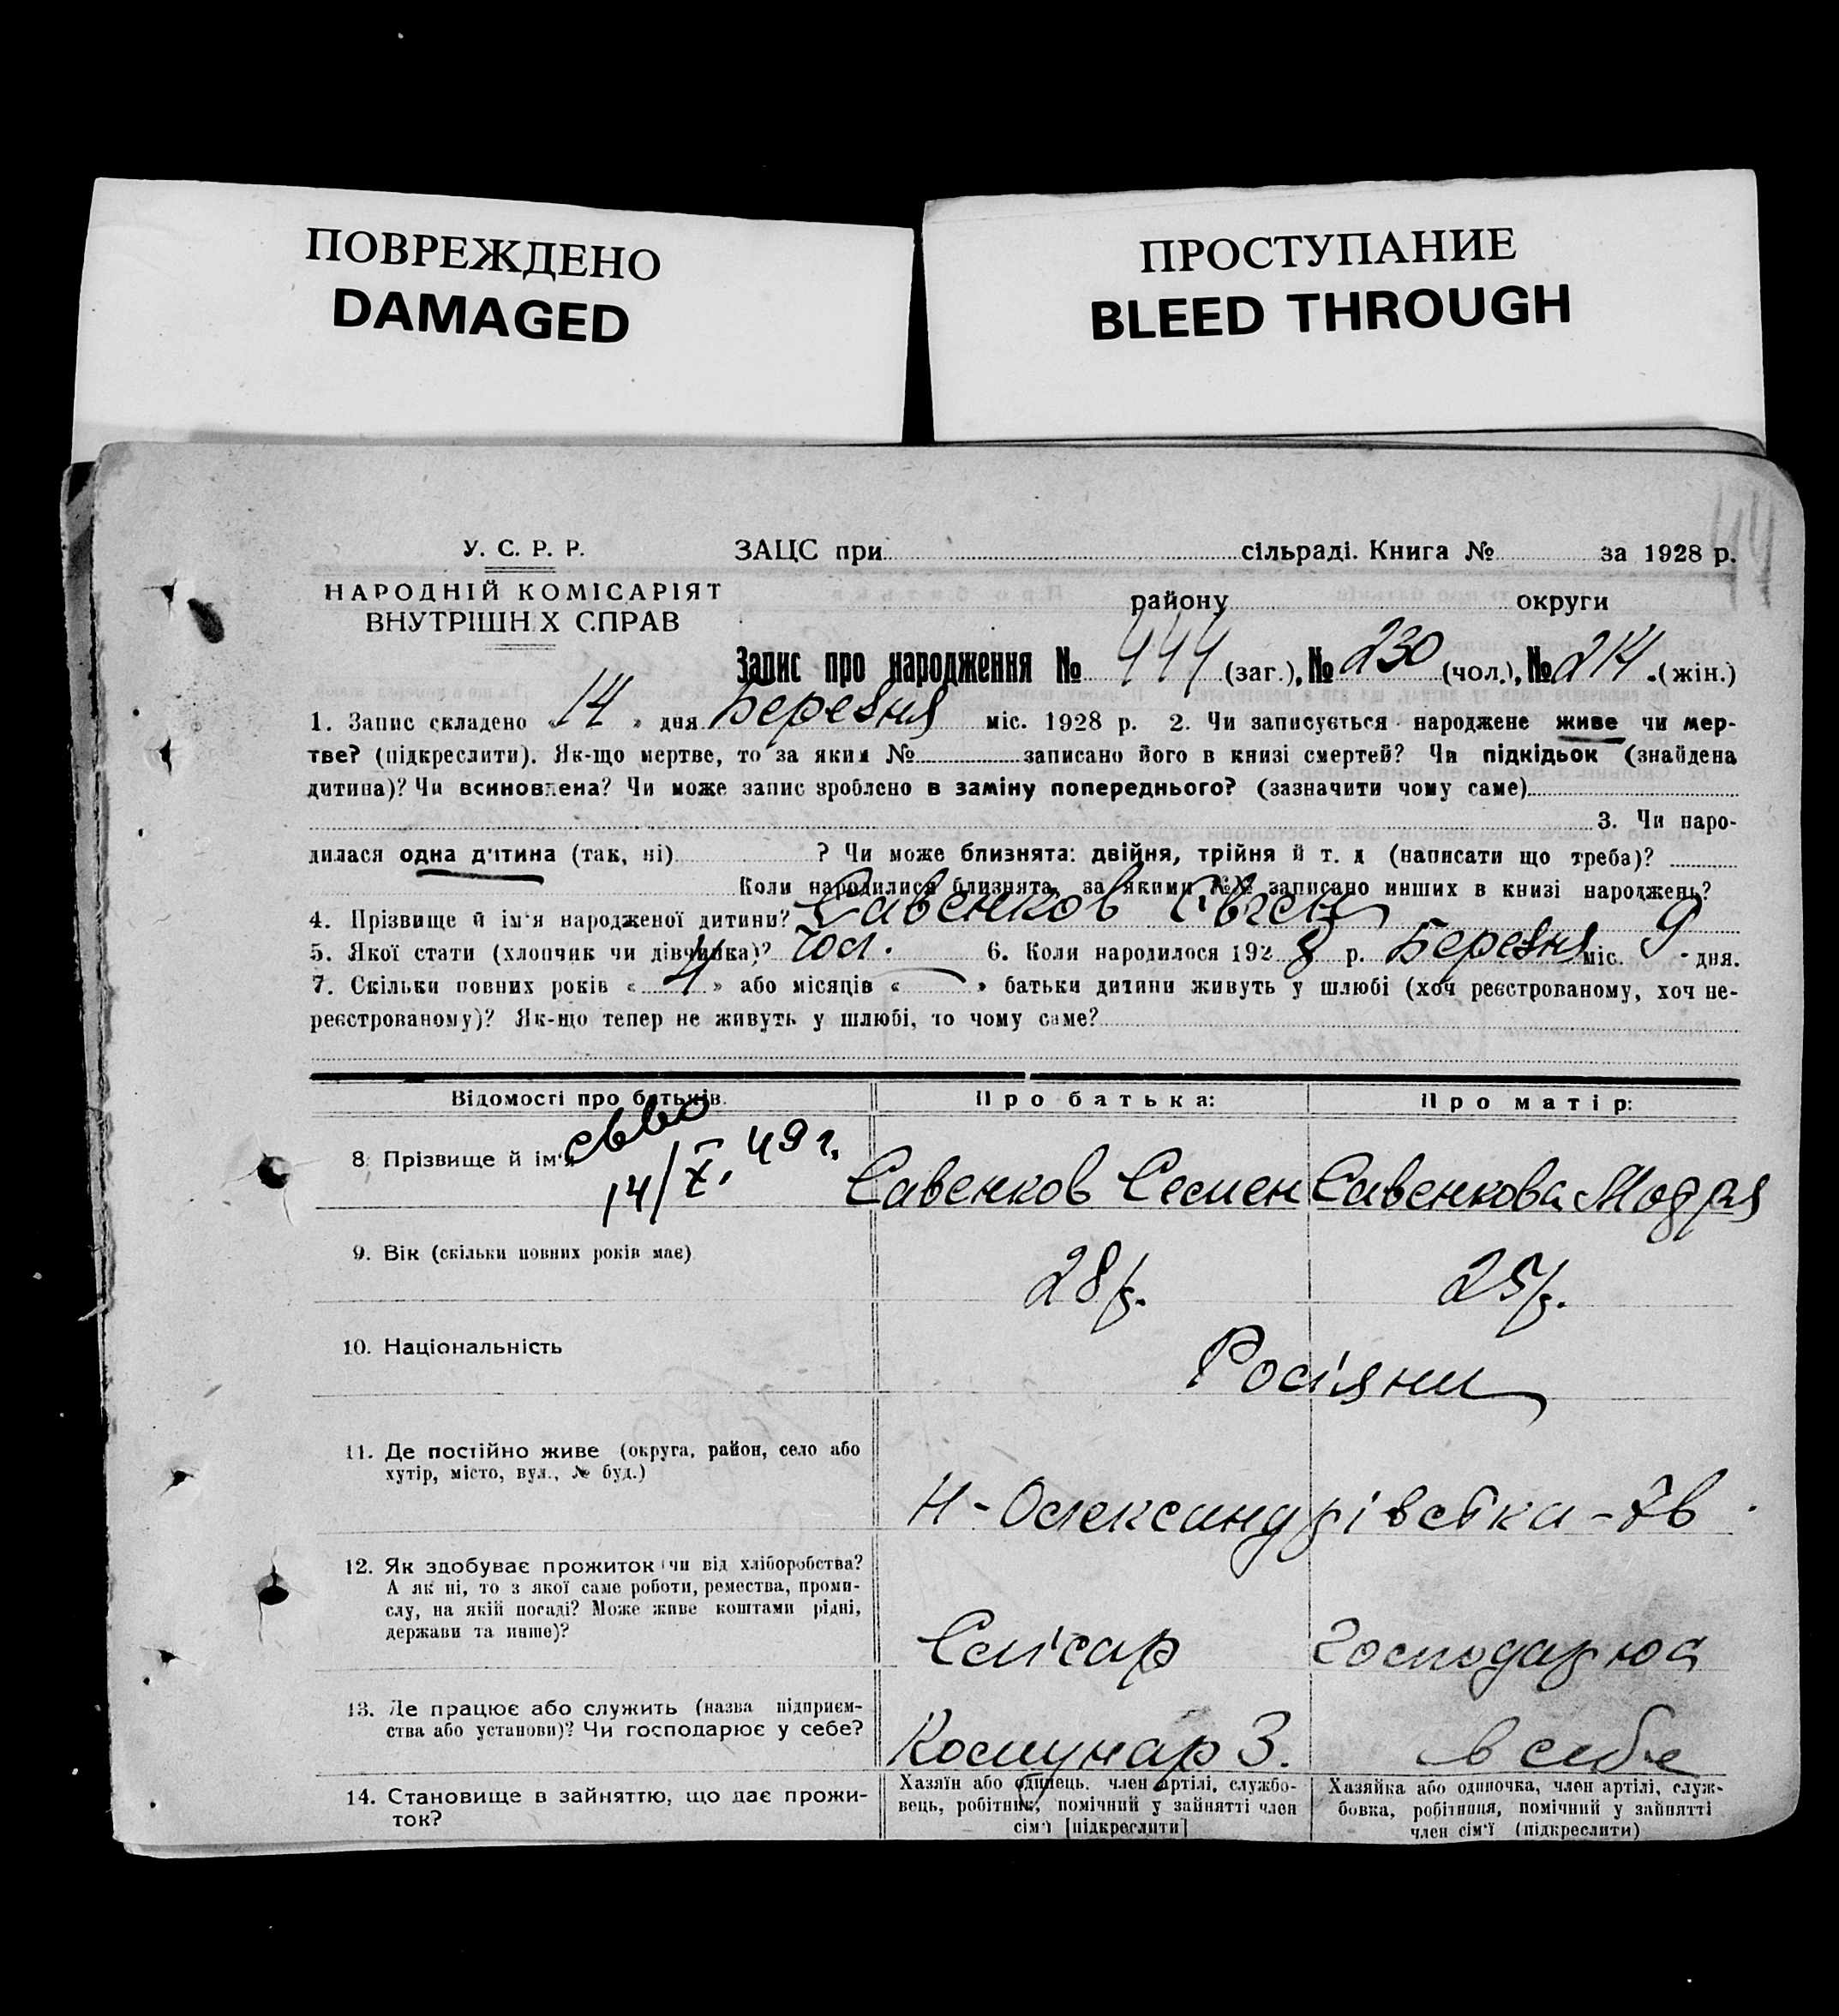 ПОВРЕЖДЕНО
DAMAGED
ПРОСТУПАНИЕ
BLEED THROUGH
44
У. С. Р. Р.
НАРОДНІЙ КОМІСАРІЯТ
ВНУТРІШНІХ СПРАВ
ЗАЦС при сільраді. Книга № за 1928 р.
району округи
Запис про народження № 444 (заг.), № 230 (чол.), № 214 (жін.)
1. Запис складено « 14 » дня Березня міс. 1928 р. 2. Чи записується народжене живе чи мер-
тве? (підкреслити). Як-що мертве, то за яким № записано його в книзі смертей? Чи підкідьок (знайдена
дитина)? Чи всиновлена? Чи може запис зроблено в заміну попереднього? (зазначити чому саме)
3. Чи наро-
дилася одна дитина (так, ні) ? Чи може близнята: двійня, трійня й т. д (написати що треба)?
Коли народилися близнята, за якими №№ записано инших в книзі народжень?
4. Прізвище й ім'я народженої дитини? Савенков Євген
5. Якої стати (хлопчик чи дівчинка)? Чол. 6. Коли народилося 1928 р. Березня міс. 9 дня.
7. Скільки повних років « 4 » або місяців « — » батьки дитини живуть у шлюбі (хоч реєстрованому, хоч не-
реєстрованому)? Як-що тепер не живуть у шлюбі, то чому саме?
Відомості про батьків.
Про батька:
Про матір:
8. Прізвище й ім'я
14/X. 49 г.
Савенков Семен
Савенкова
9. Вік (скільки повних років має)
28 р.
25 р.
10. Національність
Росіяни
11. Де постійно живе (округа, район, село або
хутір, місто, вул., № буд.)
Н-Олександрівська-7в
12. Як здобуває прожиток (чи від хліборобства?
А як ні, то з якої саме роботи, ремества, проми-
слу, на якій посаді? Може живе коштами рідні,
держави та инше)?
Слісар
Господарює
13. Де працює або служить (назва підприєм-
ства або установи)? Чи господарює у себе?
Комунар З.
в себе
14. Становище в зайняттю, що дає прожи-
ток?
Хазяїн або одинець, член артілі, службо-
вець, робітник, помічний у зайнятті член
сім'ї [підкреслити]
Хазяйка або одиночка, член артілі, служ-
бовка, робітниця, помічний у зайнятті
член сім'ї (підкреслити)